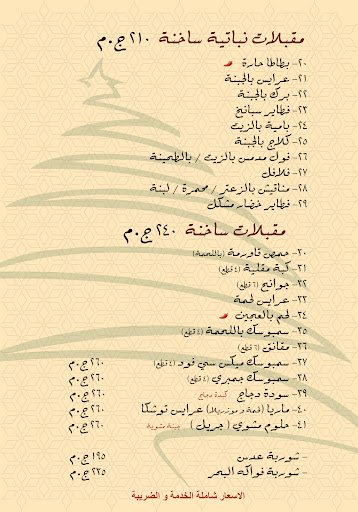 مقبلات نباتية ساخنة ٢١٠ ج.م
٢٠- بطاطا حارة
٢١- عرايس بالجبنة
٢٢- برك بالجبنة
٢٣- فطاير سبانخ
٢٤- بامية بالزيت
٢٥- كلاج بالجبنة
٢٦- فول مدمس بالزيت / بالطحينة
٢٧- فلافل
٢٨- مناقيش بالزعتر / محمرة / لبنة
٢٩- فطاير خضار مشكل
مقبلات ساخنة ٢٤٠ ج.م
٣٠- حمص قاورمة (باللحمة)
٣١- كبة مقلية (٤ قطع)
٣٢- جوانح (٦ قطع)
٣٣- عرايس لحمة
٣٤- لحم بالعجين
٣٥- سمبوسك باللحمة (٤ قطع)
٣٦- مقانق (٦ قطع)
٣٧- سمبوسك ميكس سي فود (٤ قطع) ٢٦٠ ج.م
٣٨- سمبوسك جمبري (٤ قطع) ٢٦٠ ج.م
٣٩- سودة دجاج كبدة دجاج ٢٦٠ ج.م
٤٠- ماريا (لحمة و موزريلا) عرايس توشكا ٢٦٠ ج.م
٤١- حلوم مشوي (جريل) جبنة مشوية ٢٦٠ ج.م
- شوربة عدس ١٩٥ ج.م
- شوربة فواكه البحر ٢٢٥ ج.م
الاسعار شاملة الخدمة و الضريبة